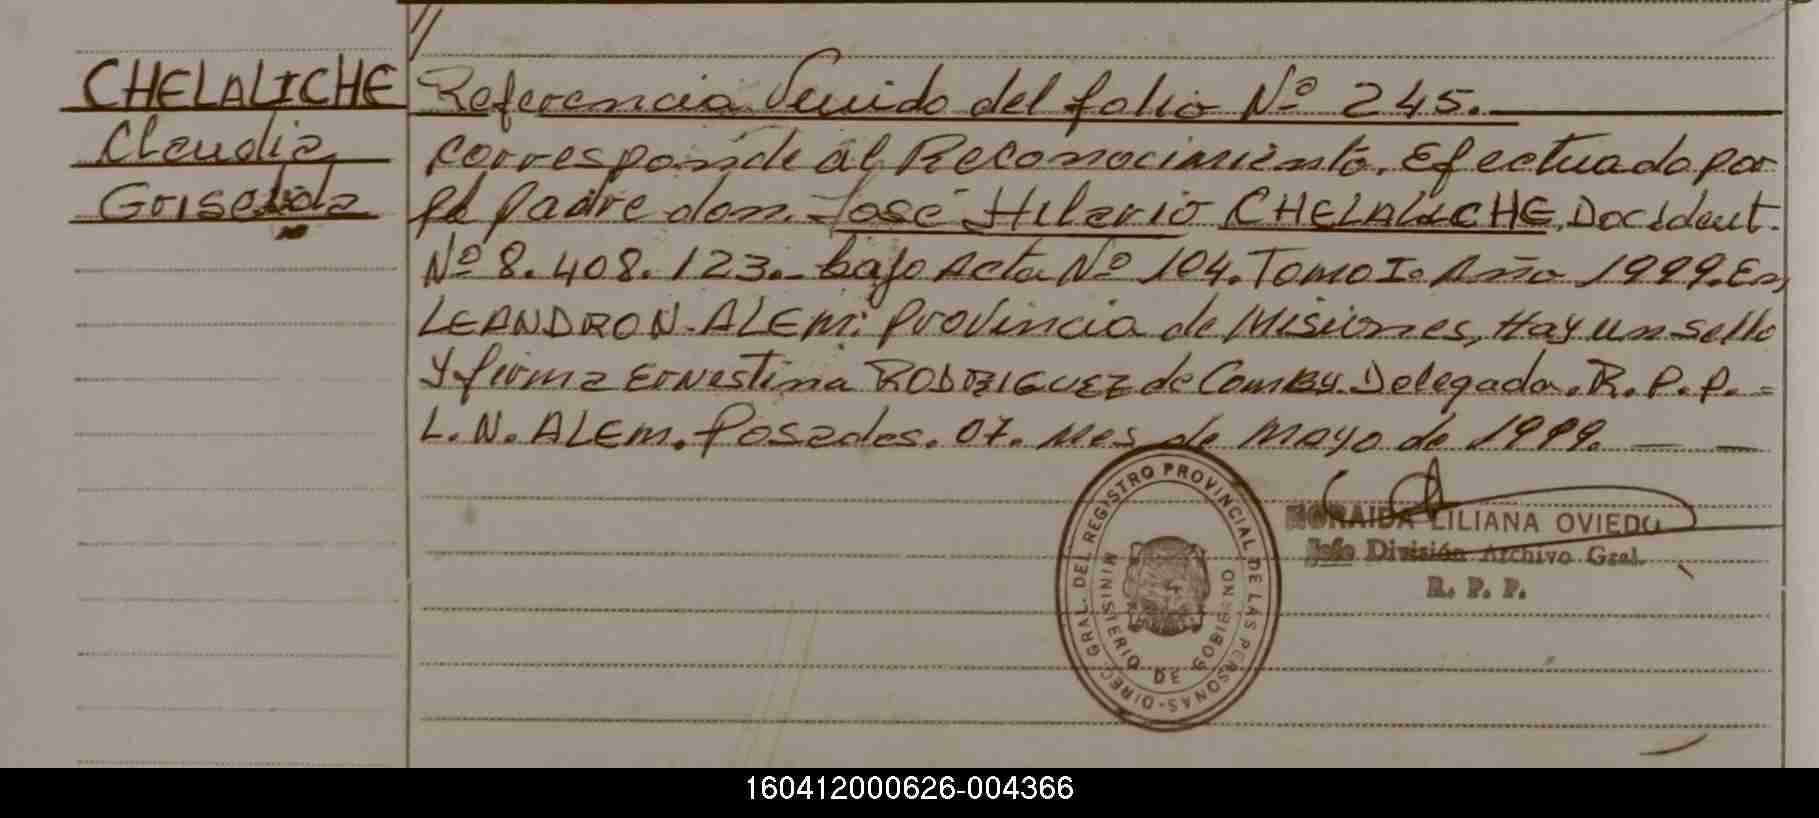 CHELALICHE
Claudia
Griselda
Referencia Venido del folio Nº 245.
corresponde al Reconocimiento. Efectuado por
el padre don. José Hilario CHELALICHE. Doc Ident.
Nº 8.408.123.- bajo Acta Nº 104. Tomo I. Año 1999. En
LEANDRO N. ALEM. Provincia de Misiones, Hay un sello
Y firma Ernestina RODRIGUEZ de Delegada. R.P.P. =
L.N. ALEM. Posadas. 07. mes de Mayo de 1999. — —
DIREC. GRAL. DEL REGISTRO PROVINCIAL DE LAS PERSONAS-
MINISTERIO DE GOBIERNO
LILIANA OVIEDO
Jefe División Archivo Gral.
R. P. P.
160412000626-004366